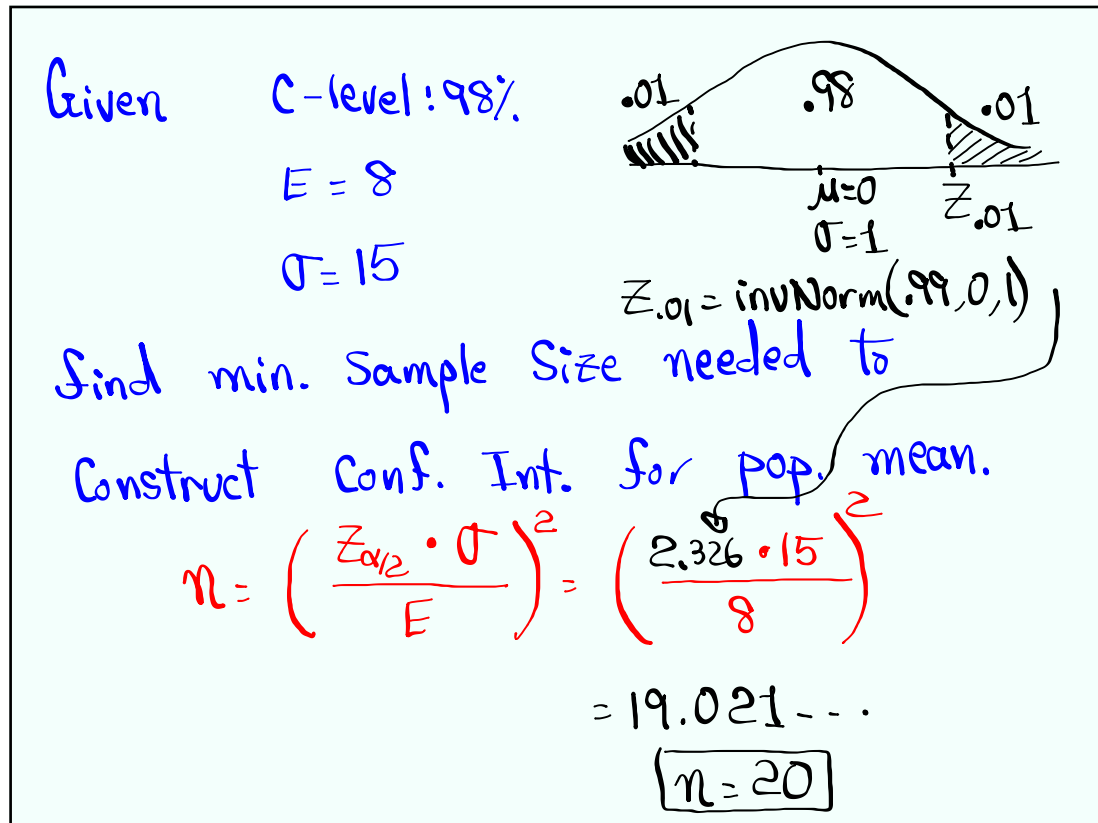 Given C-level: 98%
E = 8
σ = 15
.01 .98 .01
μ=0 Z.01
σ=1
Z.01 = invNorm(.99,0,1)
find min. Sample Size needed to
Construct Conf. Int. for pop. mean.
n = (Zα/2 • σ / E)² = (2.326 • 15 / 8)²
= 19.021---.
n = 20